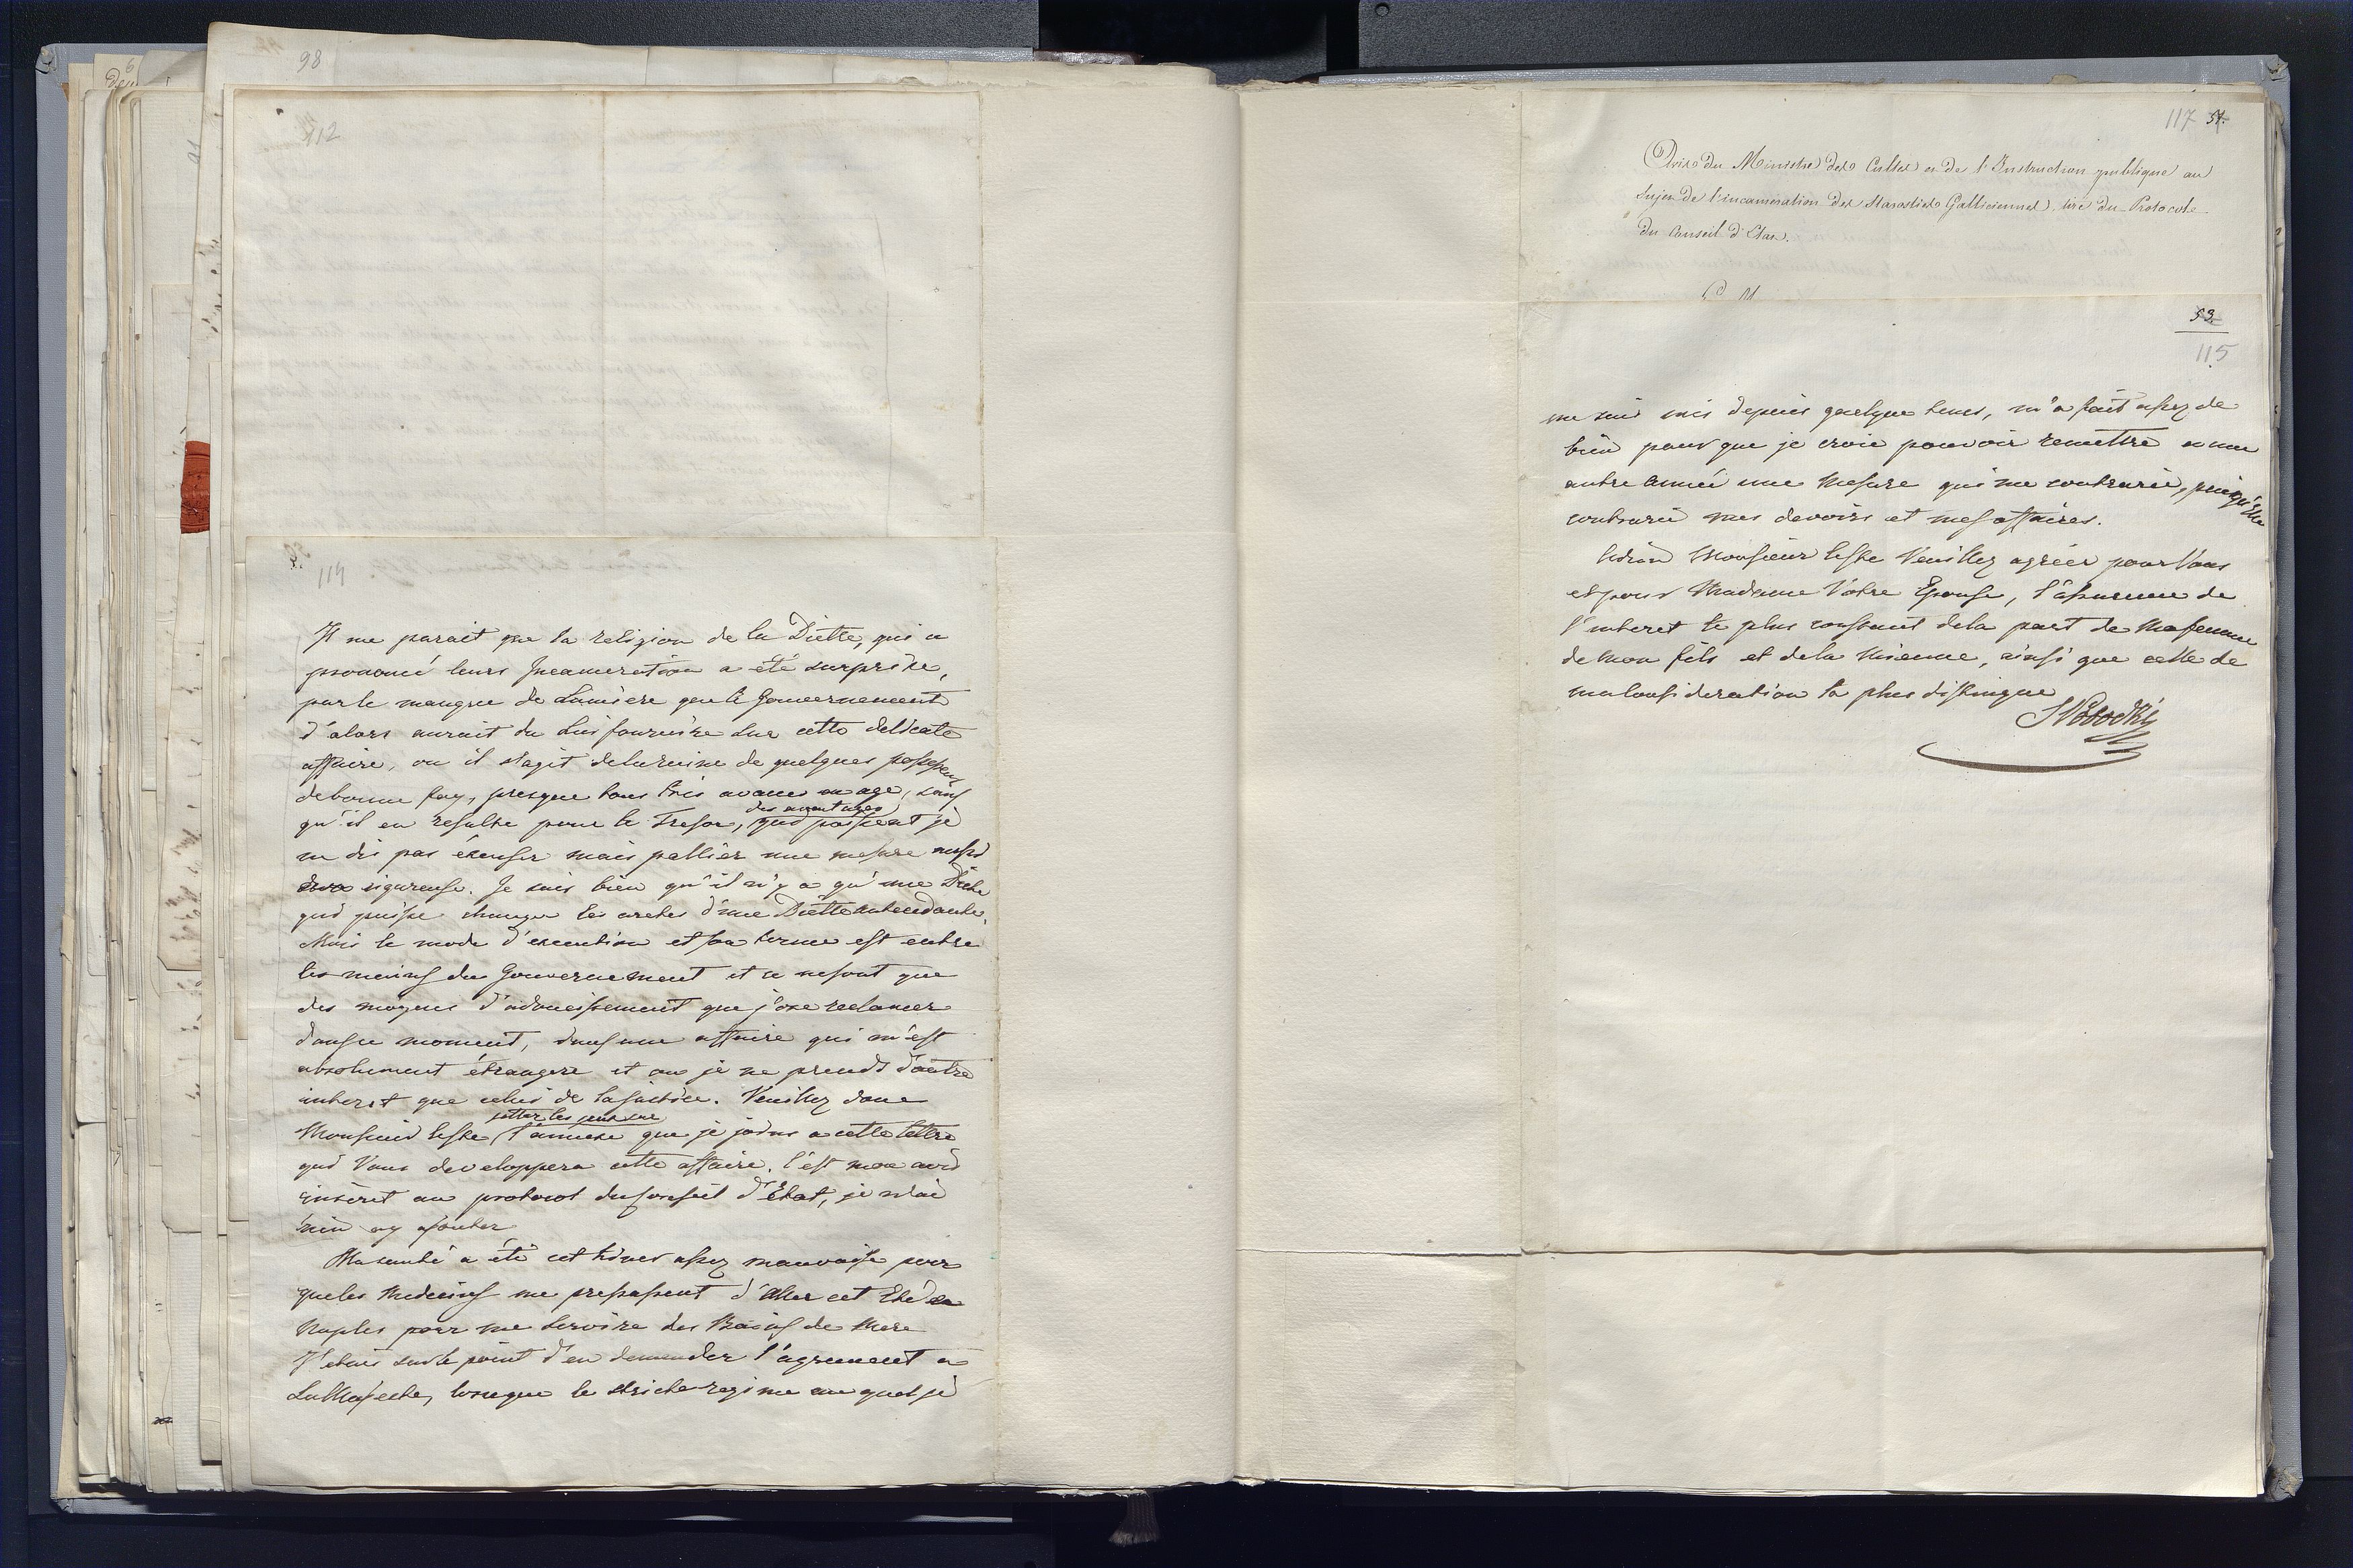 98
112
114
Il me parait que la religion de la Diette, qui a
prononcé leurs Incameration a été surprise,
par le manque de Lumiere que le Gouvernement
d'alors aurait du Lui fournire sur cette delicate
affaire, ou il s'agit delaruine de quelques possesseurs
debonne foy, presque tous très avancé en age, sans
des avantages
qu'il en resulte pour le Tresor, qui puissent je
ne dis pas éxcuser mais pallier une mesure aussi
rigureuse. Je sais bien qu'il n'y a qu'une Diette
qui puisse changer les aretes d'une Diette antecedante,
Mais le mode d'execution et son terme est entre
les mains du Gouvernement et ce nesont que
des moyens d'adoucissement que j'ose reclamer
dansce moment, dans une affaire qui m'est
absolument étrangere et ou je ne prends d'autre
interet que celui de lajustice. Veuillez donc
jetter les yeux sur
Monsieur leste l'annexe que je joins a cette lettre
qui Vous developpera cette affaire. C'est mon avis
inséret au protocol duConseil d'Etat, je n'ai
rien a y ajouter
Masanté a été cet hiver assez mauvaise pour
queles Medecins me proposent d'aller cet Eté a
Naples pour me servire des Bains de Mere
J'etais surle point d'en demander l'agrement a
SaMajesté, lorsque le stricte regime au quel je
117 51.
Avis du Ministre des Cultes et de l'Instruction publique au
Sujet de l'incameration des Starosties Galliciennes tiré du Protocole
du Conseil d'Etat.
53
115
me suis mis depuis quelque tems, m'a fait assez de
bien pour que je croie pouvoir remettre a une
autre année une Mesure qui me contrarie, puisqu'elle
contrarie mes devoirs et mes affaires.
Monsieur leste Veuillez agréer pour Vous
et pour Madame Votre Epouse, l'assurance de
l'interet le plus constant dela part de Mafemme
de Mon fils et dela Mienne, ainsi que celle de
maConsideration la plus distingue
S Potocki